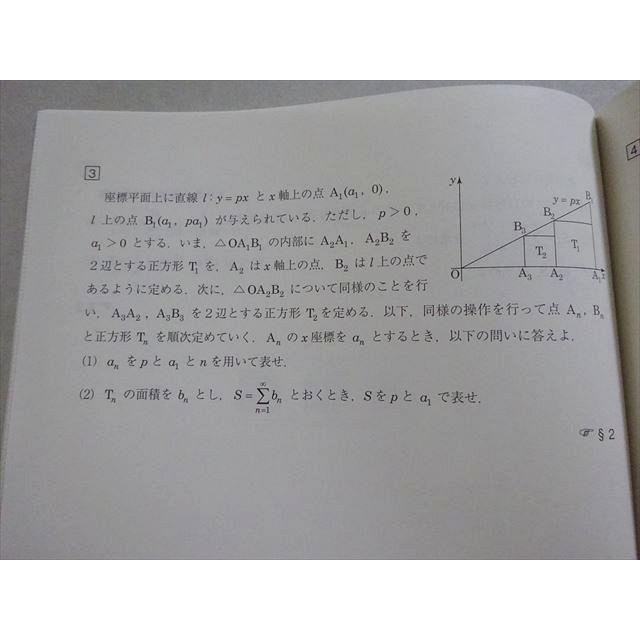 3
座標平面上に直線 l : y = px と x 軸上の点 A₁(a₁, 0),
l 上の点 B₁(a₁, pa₁) が与えられている. ただし, p > 0,
a₁ > 0 とする. いま, △OA₁B₁ の内部に A₂A₁, A₂B₂ を
2辺とする正方形 T₁ を, A₂ は x 軸上の点, B₂ は l 上の点で
あるように定める. 次に, △OA₂B₂ について同様のことを行
い, A₃A₂, A₃B₃ を2辺とする正方形 T₂ を定める. 以下, 同様の操作を行って点 Aₙ, Bₙ
と正方形 Tₙ を順次定めていく. Aₙ の x 座標を aₙ とするとき, 以下の問いに答えよ.
(1) aₙ を p と a₁ と n を用いて表せ.
(2) Tₙ の面積を bₙ とし, S = ∑_{n=1}^{∞} bₙ とおくとき, S を p と a₁ で表せ.
☞ §2
y
y = px
B₁
B₂
B₃
T₂
T₁
O
A₃
A₂
A₁
x
4